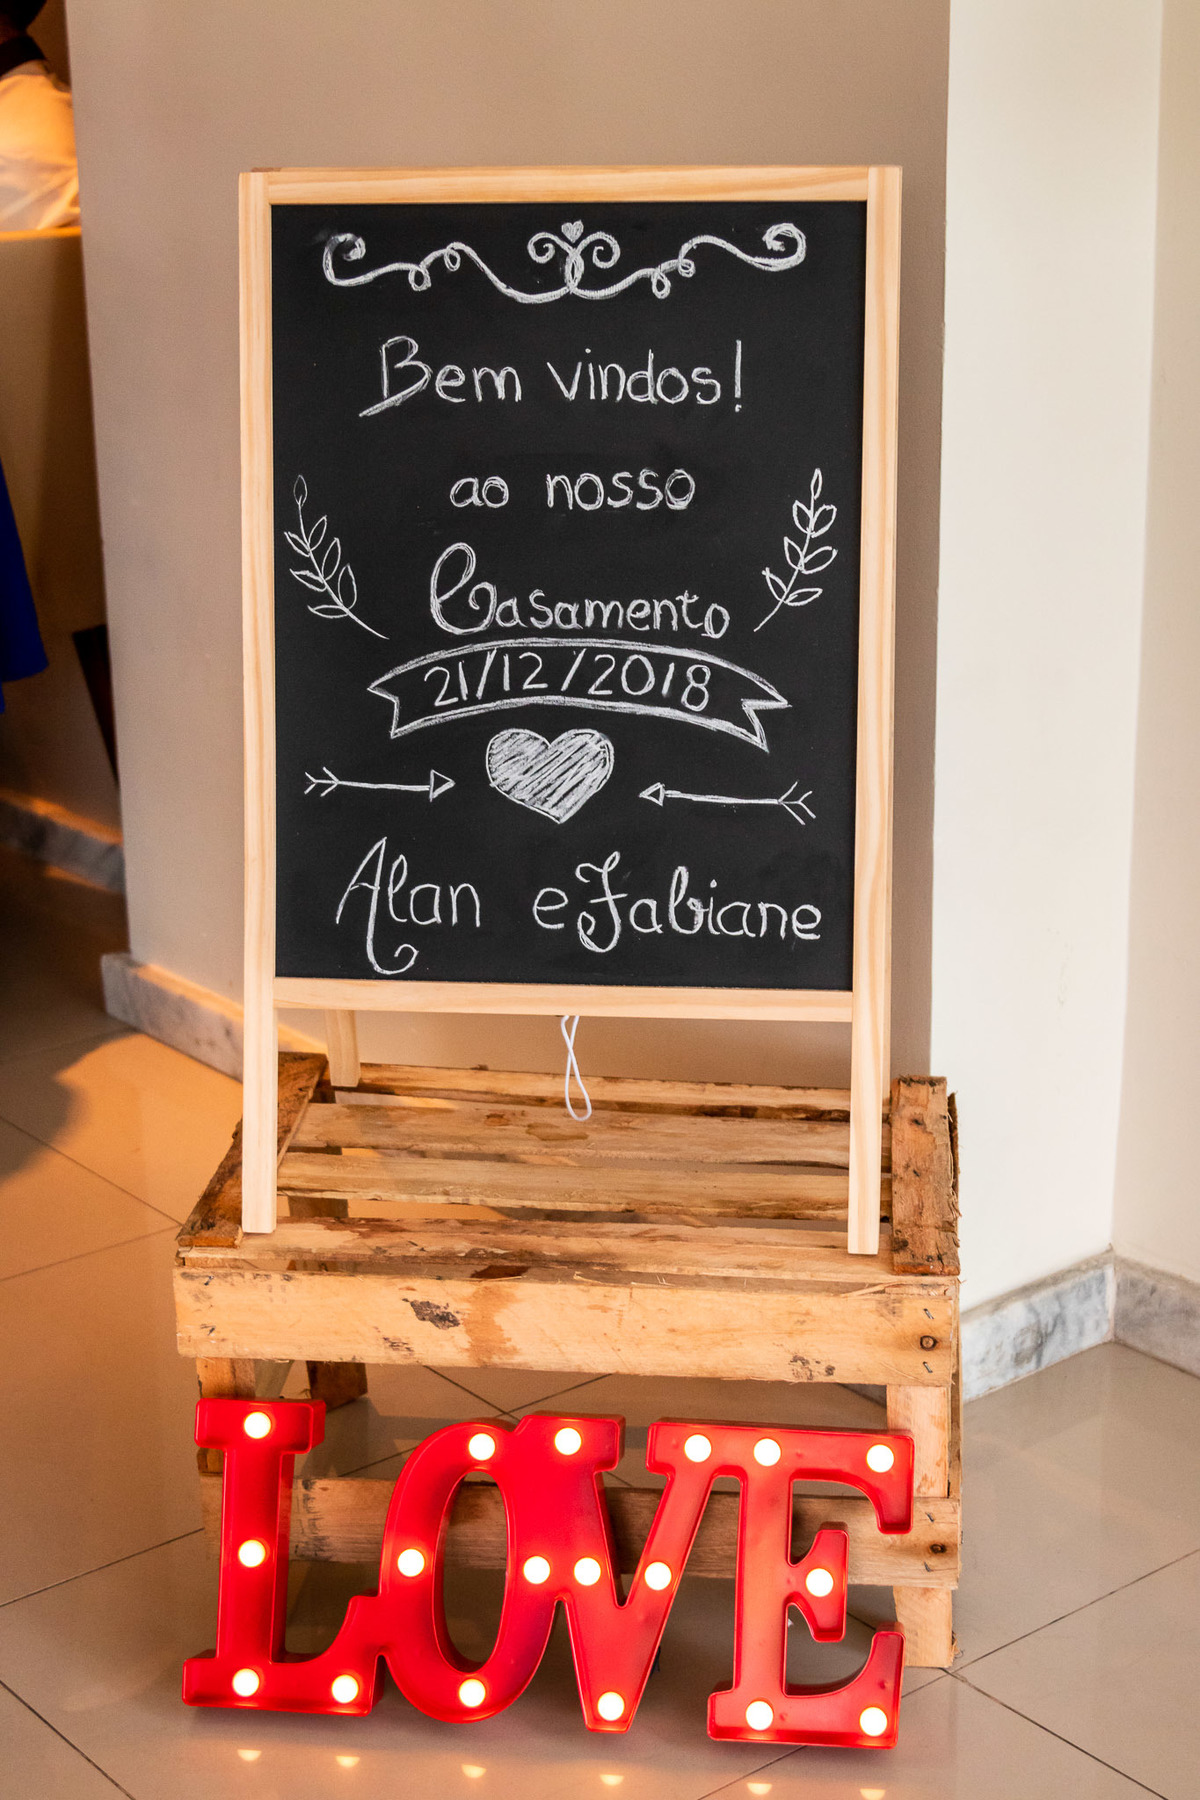 Bem vindos!
ao nosso
Casamento
21/12/2018
Alan e Fabiane
LOVE